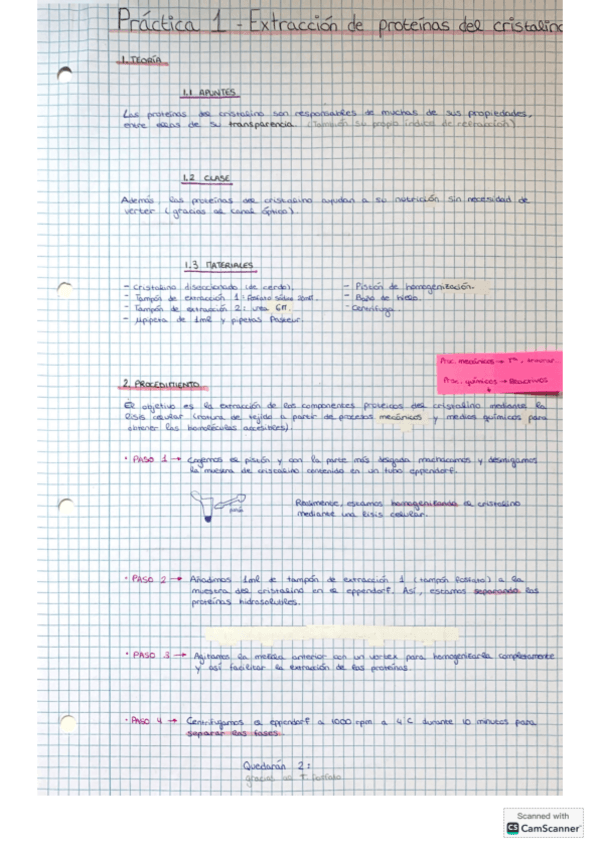 Práctica 1 - Extracción de proteínas del cristalino
1. TEORÍA
1.1 APUNTES
Las proteínas del cristalino son responsables de muchas de sus propiedades,
entre ellas de su transparencia. (También su propio índice de refracción)
1.2 CLASE
Además, las proteínas del cristalino ayudan a su nutrición sin necesidad de
verter (gracias al canal óptico).
1.3 MATERIALES
- Cristalino diseccionado (de cerdo).
- Tampón de extracción 1: Fosfato sódico
- Tampón de extracción 2: urea 6M
- μpipeta de 1ml y pipetas Pasteur.
- Pistón de homogenización.
- Baño de hielo.
- Centrífuga.
Proc. mecánicos → Tª,
Proc. químicos → Reactivos
2. PROCEDIMIENTO
El objetivo es la extracción de los componentes proteicos del cristalino mediante la
lisis celular (rotura de tejido a partir de procesos mecánicos y medios químicos para
obtener las biomoléculas accesibles).
• PASO 1 → Cogemos el pistón y con la parte más delgada machacamos y desmigamos
la muestra de cristalino contenido en un tubo eppendorf.
Realmente, estamos homogenizando el cristalino
mediante una lisis celular.
• PASO 2 → Añadimos 1ml de tampón de extracción 1 (tampón fosfato) a la
muestra del cristalino en el eppendorf. Así, estamos separando las
proteínas hidrosolubles.
• PASO 3 → Agitamos la mezcla anterior con un vortex para homogenizarla completamente
y así facilitar la extracción de las proteínas.
• PASO 4 → Centrifugamos el eppendorf a 1000 rpm a 4 C durante 10 minutos para
separar las fases.
Quedarán 2:
gracias al T. Fosfato
Scanned with
CS CamScanner